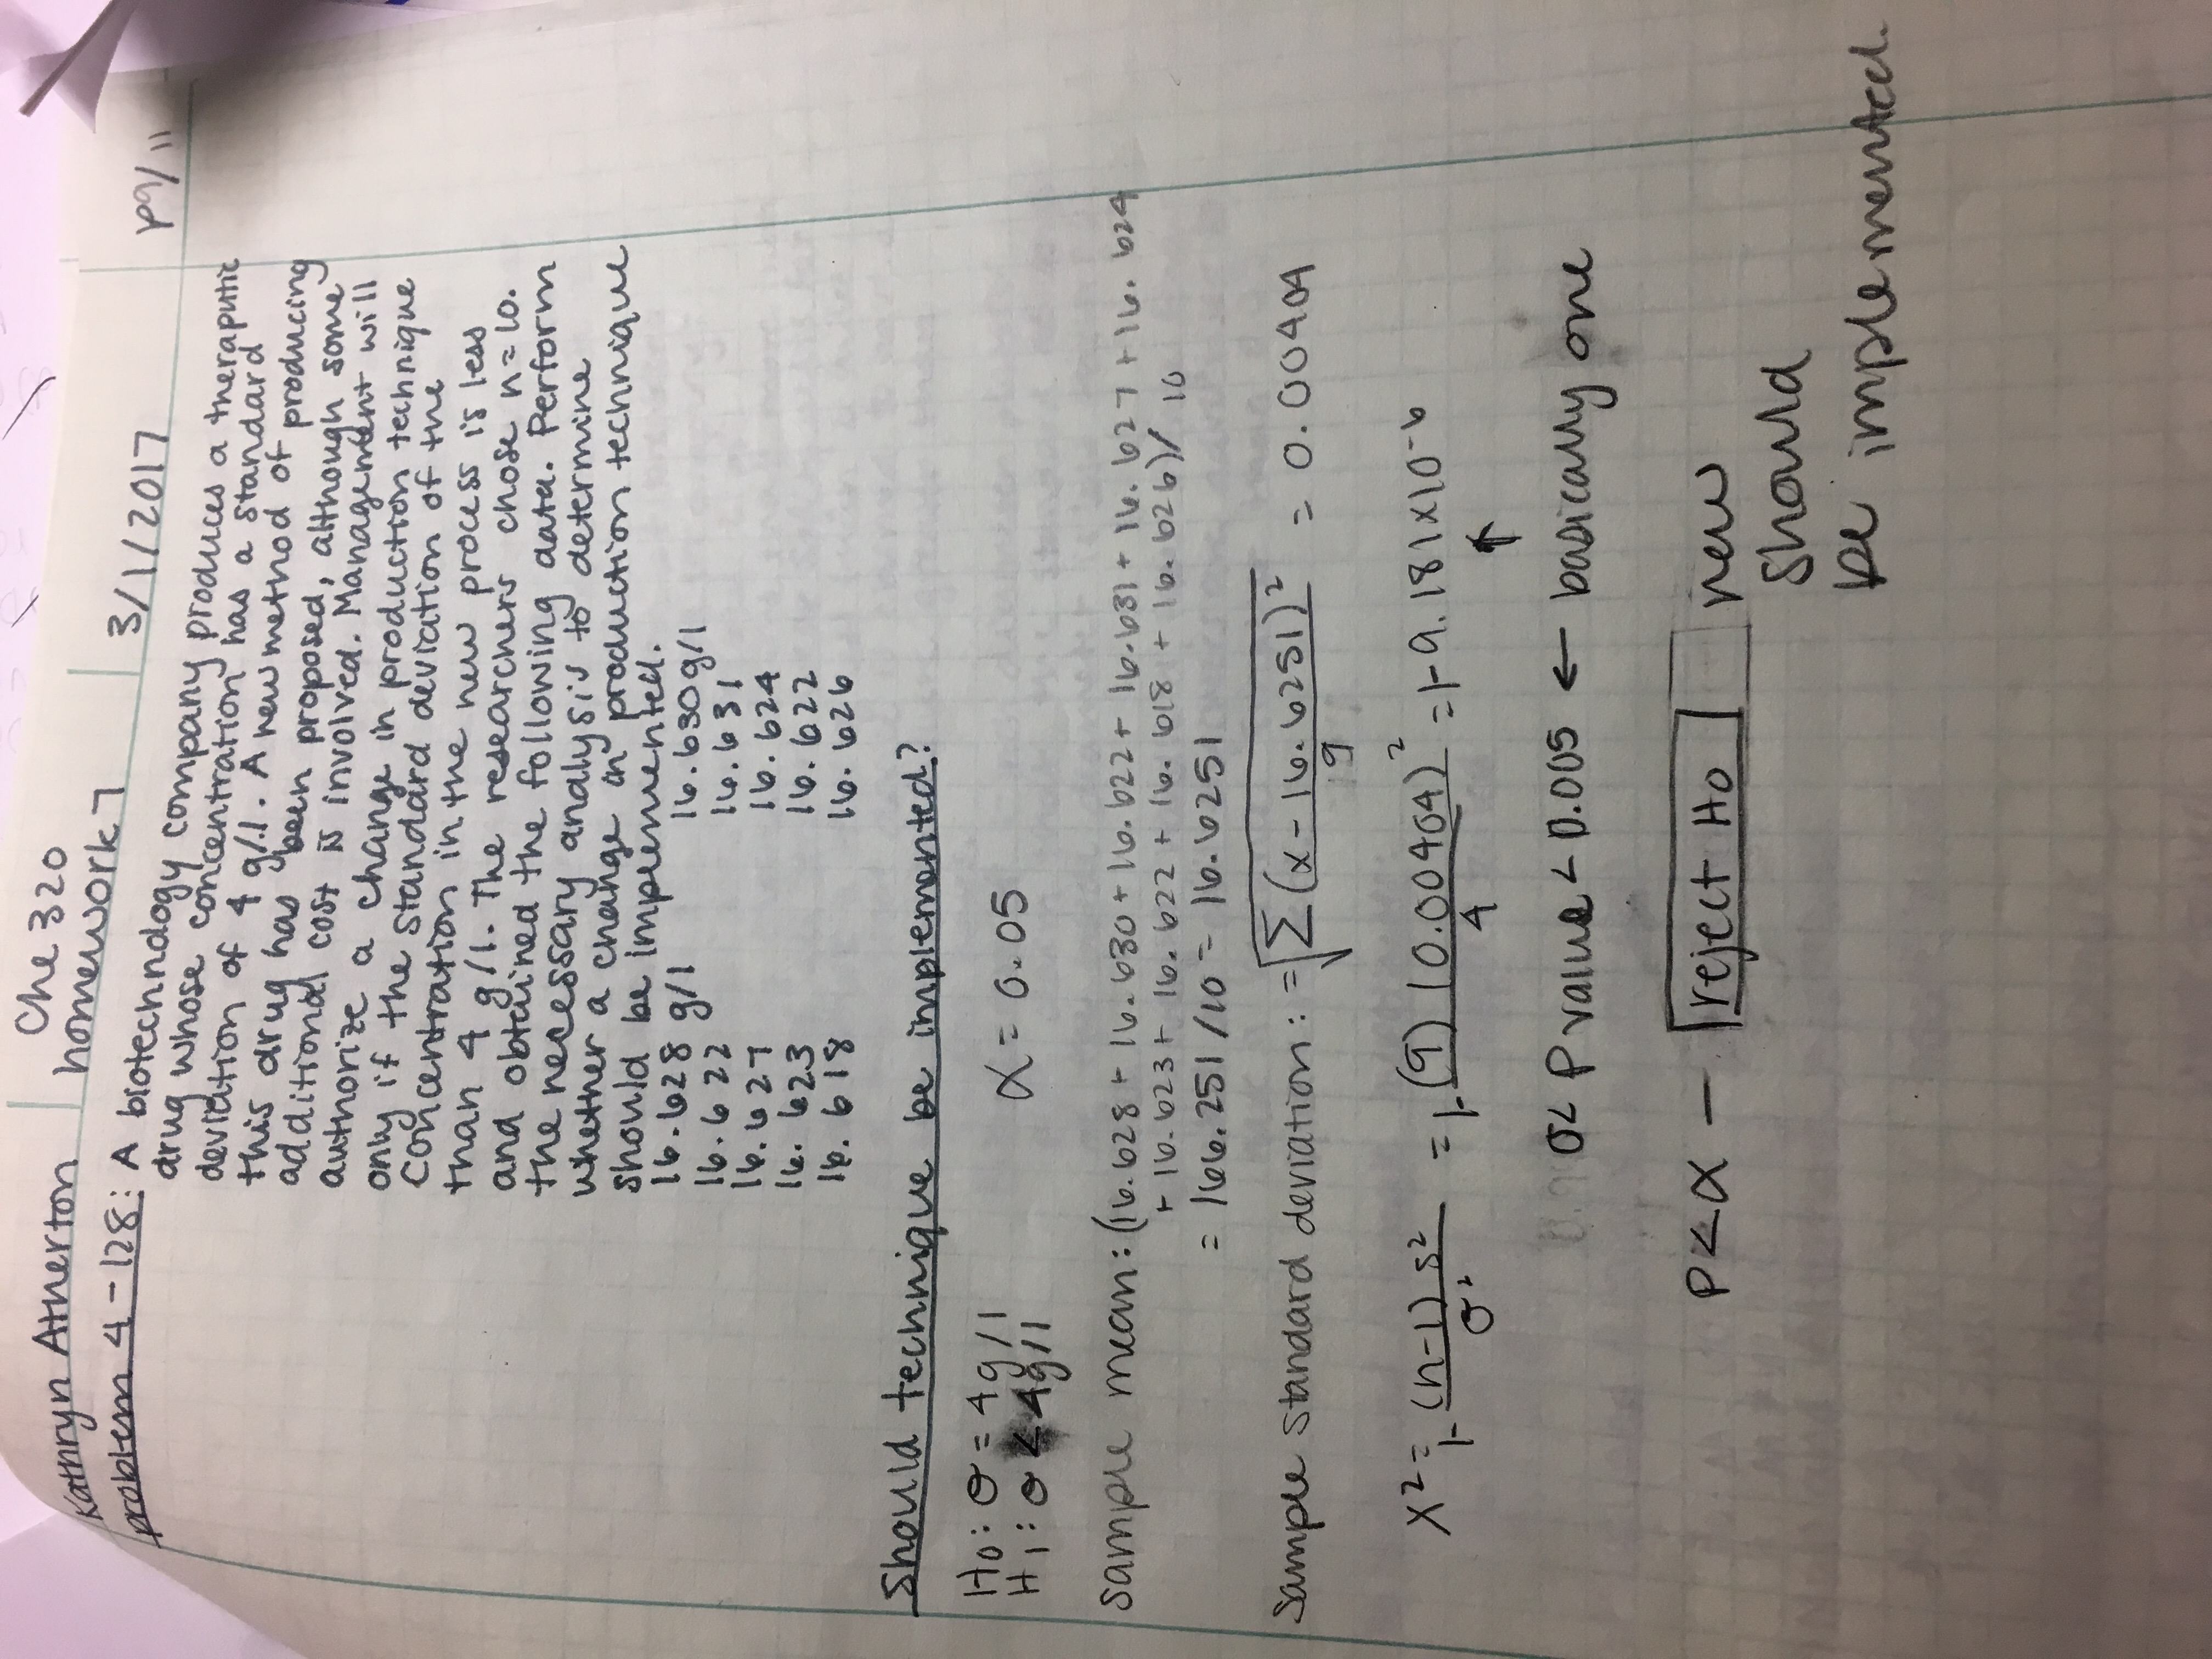 Kathryn Atherton
Che 320
homework 7
3/1/2017
p9/11
problem 4-128: A biotechnology company produces a theraputic
drug whose concentration has a standard
deviation of 4 g/l. A new method of producing
this drug has been proposed, although some
additional cost is involved. Management will
authorize a change in production technique
only if the standard deviation of the
concentration in the new process is less
than 4 g/l. The researchers chose n=10.
and obtained the following data. Perform
the necessary analysis to determine
whether a change in production technique
should be implemented.
16.628 g/l 16.630 g/l
16.622 16.631
16.627 16.624
16.623 16.622
16.618 16.626
Should technique be implemented?
H0: σ = 4g/l
H1: σ < 4g/l
α = 0.05
sample mean: (16.628 + 16.630 + 16.622 + 16.631 + 16.627 + 16.624
+ 16.623 + 16.622 + 16.618 + 16.626)/10
= 166.251/10 = 16.6251
sample standard deviation: = √(Σ(x - 16.6251)²/9) = 0.00404
X² = 1- (n-1)s²/σ² = 1- (9)(0.00404)²/4 = 1- 9.181x10⁻⁶
↑
0< P value < 0.005 ← basically one
P<α — reject H0 new
should
be implemented.